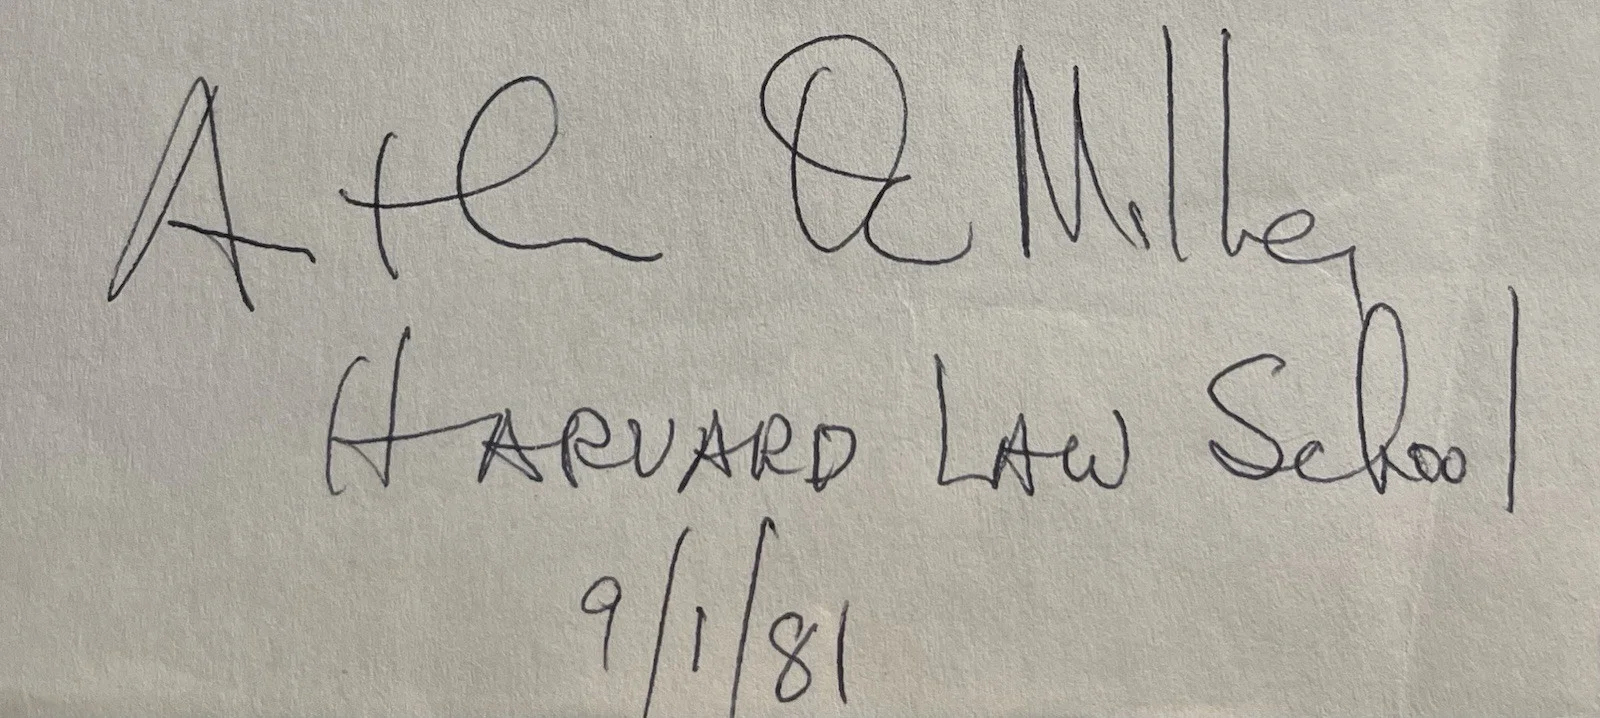 Arthur R Miller
HARVARD LAW School
9/1/81